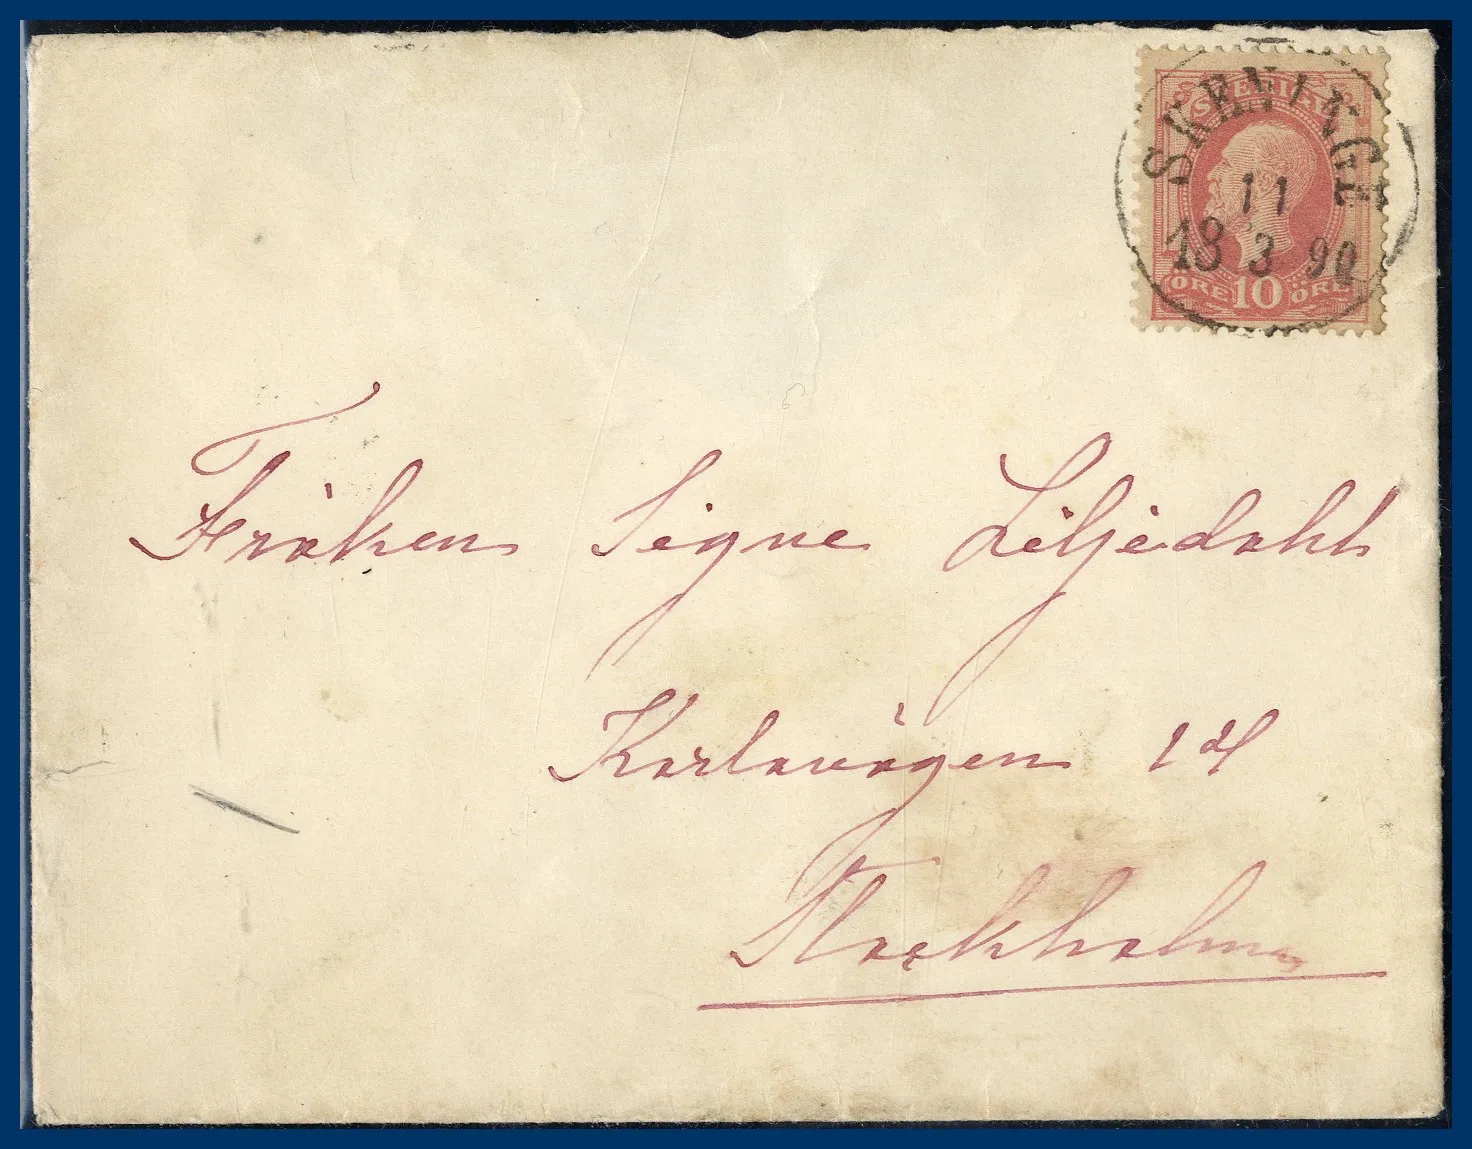 SVERIGE
SKENINGE
11
18 3 90
ÖRE 10 ÖRE
Fröken Signe Liljedahl
Karlavägen 14
Stockholm